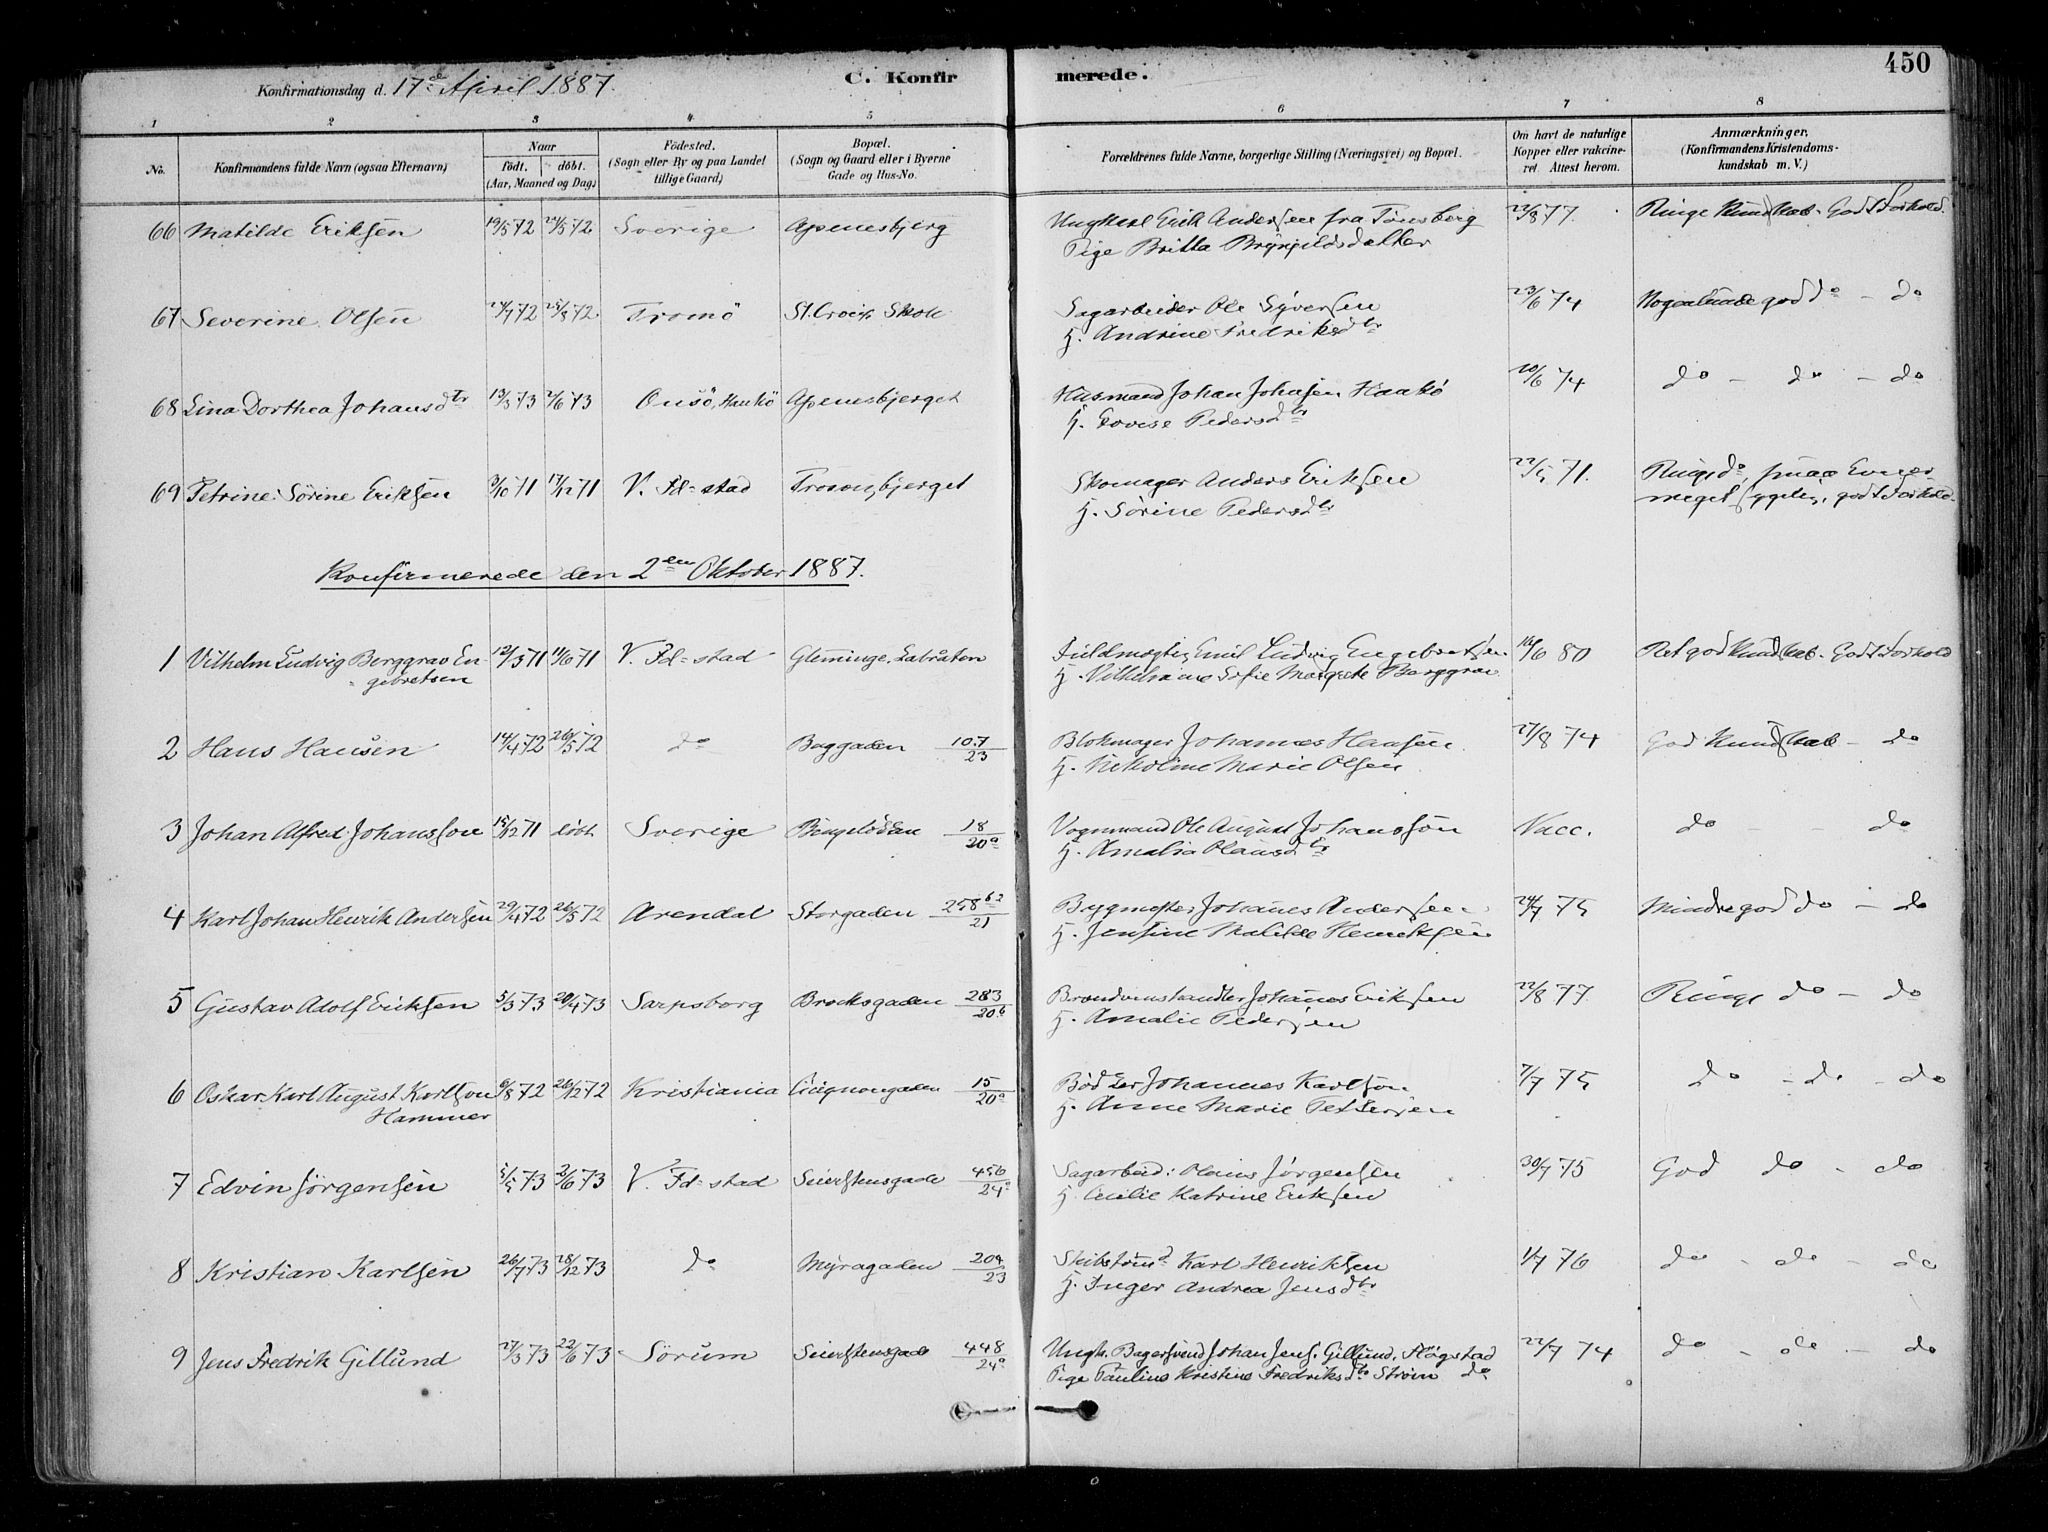 450
Konfirmationsdag d. 17de April 1887.
C. Konfirmerede.
1 2 3 4 5 6 7 8
No. Konfirmandens fulde Navn (ogsaa Efternavn) Naar født. døbt. (Aar, Maaned og Dag) Fødested. (Sogn eller By og paa Landet tillige Gaard) Bopæl. (Sogn og Gaard eller i Byerne Gade og Hus-No. Forældrenes fulde Navne, borgerlige Stilling (Næringsvei) og Bopæl. Om havt de naturlige Kopper eller vakcineret. Attest herom. Anmærkninger. (Konfirmandens Kristendomskundskab m. V.)
66 Matilde Eriksen 19/5 72 24/5 72 Sverige Apenesbjerg Ungkarl Erik Andersen fra Tønsberg 22/8 77. Ringe Kundskab. Godt Forhold.
Pige Britta Brynjildsdatter
67 Severine Olsen 24/7 72 25/8 72 Tromö St. Croix Skole Sagarbeider Ole Syversen 23/6 74 Nogenlunde god do - do
H. Andrine Fredriksdtr
68 Lina Dorthea Johansdtr 13/3 73 2/6 73 Onsö, Hankö Apenesbjerget Husmand Johan Johnsen Haakö 20/6 74 do - do - do
H. Lovise Pedersdtr
69 Petrine Sörine Eriksen 3/10 71 17/12 71 V. Fd=stad Trosvigbjerget Skomager Anders Eriksen 22/5 71. Ringe do, smaa Evner
H. Sörine Pedersdtr meget sygelig, godt Forhold.
Konfirmerede den 2den Oktober 1887.
1 Vilhelm Ludvig Berggrav En- 12/3 71 11/6 71 V. Fd=stad Glemminge, Fuldmægtig Emil Ludvig Engebretsen 16/6 80 Ret god Kundskab. Godt Forhold
gebretsen H. Vilhelmine Sofie Margrete Berggrav
2 Hans Hansen 14/4 72 26/5 72 do Baggaden 107/23 Blokmager Johannes Hansen 27/8 74 God Kundskab - do
H. Nikoline Marie Olsen
3 Johan Alfred Johansson 15/12 71 döbt Sverige 18/20a Vognmand Ole August Johansson Vacc. do - - do
H. Amalia Olausdtr
4 Karl Johan Henrik Andersen 29/4 72 26/5 72 Arendal Storgaden 258 62/21 Bygmester Johanes Andersen 24/7 75 Mindre god do - do
H. Jensine Matilde Henriksen
5 Gustav Adolf Eriksen 5/3 73 20/4 73 Sarpsborg Brocksgaden 283/20b Brændevinshandler Johanes Eriksen 22/8 77. Ringe do - do
H. Amalie Pedersen
6 Oskar Karl August Karlson 6/8 72 26/12 72 Kristiania Cicignongaden 15/20a Bödker Johannes Karlson 7/7 75 do - do - do
Hammer H. Anne Marie Pettersen
7 Edvin Jörgensen 5/5 73 2/6 73 V. Fd=stad Seierstensgade 456/24a Sagarbeid: Olaus Jørgensen 30/7 75 God do - do
H. Cecilie Katrine Eriksen
8 Kristian Karlsen 26/7 73 28/12 73 do Myragaden 209/23 Skibstømd Karl Henriksen 1/7 76 do - do - do
H. Inger Andrea Jensdtr
9 Jens Fredrik Gillund 27/3 73 22/6 73 Sörum Seierstensgade 448/24a Ungk. Bagersvend Johan Jens. Gillund, Högstad 22/7 74 do - do - do
Pige Pauline Kristine Fredriksdtr Ström do